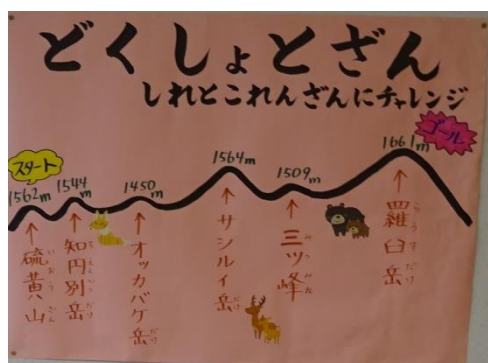 どくしょとざん
しれとこれんざんにチャレンジ
スタート
ゴール
1562m
1544m
1450m
1564m
1509m
1661m
硫黄山
いおうざん
知円別岳
ちえんべつだけ
オッカバケ岳
だけ
サシルイ岳
だけ
三ツ峰
みつみね
羅臼岳
らうすだけ